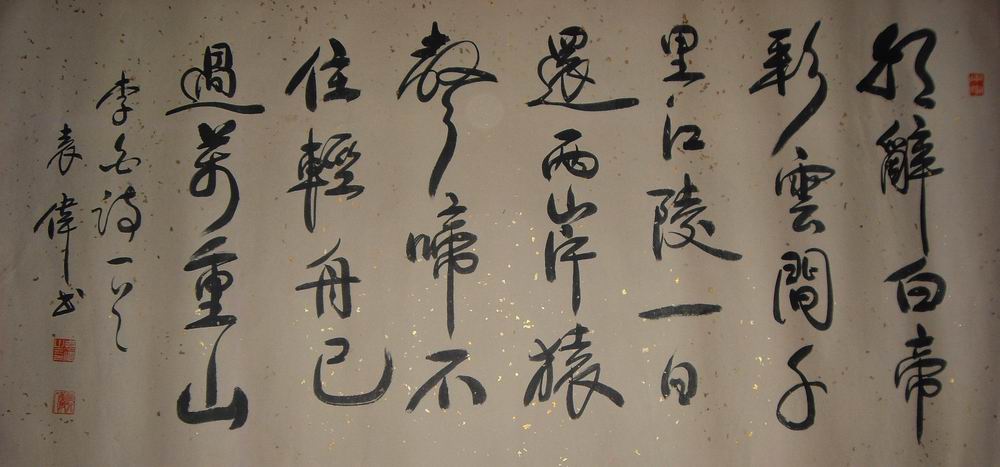 朝辭白帝
彩雲間千
里江陵一日
還兩岸猿
聲啼不
住輕舟已
過萬重山
李白詩一首
袁偉書